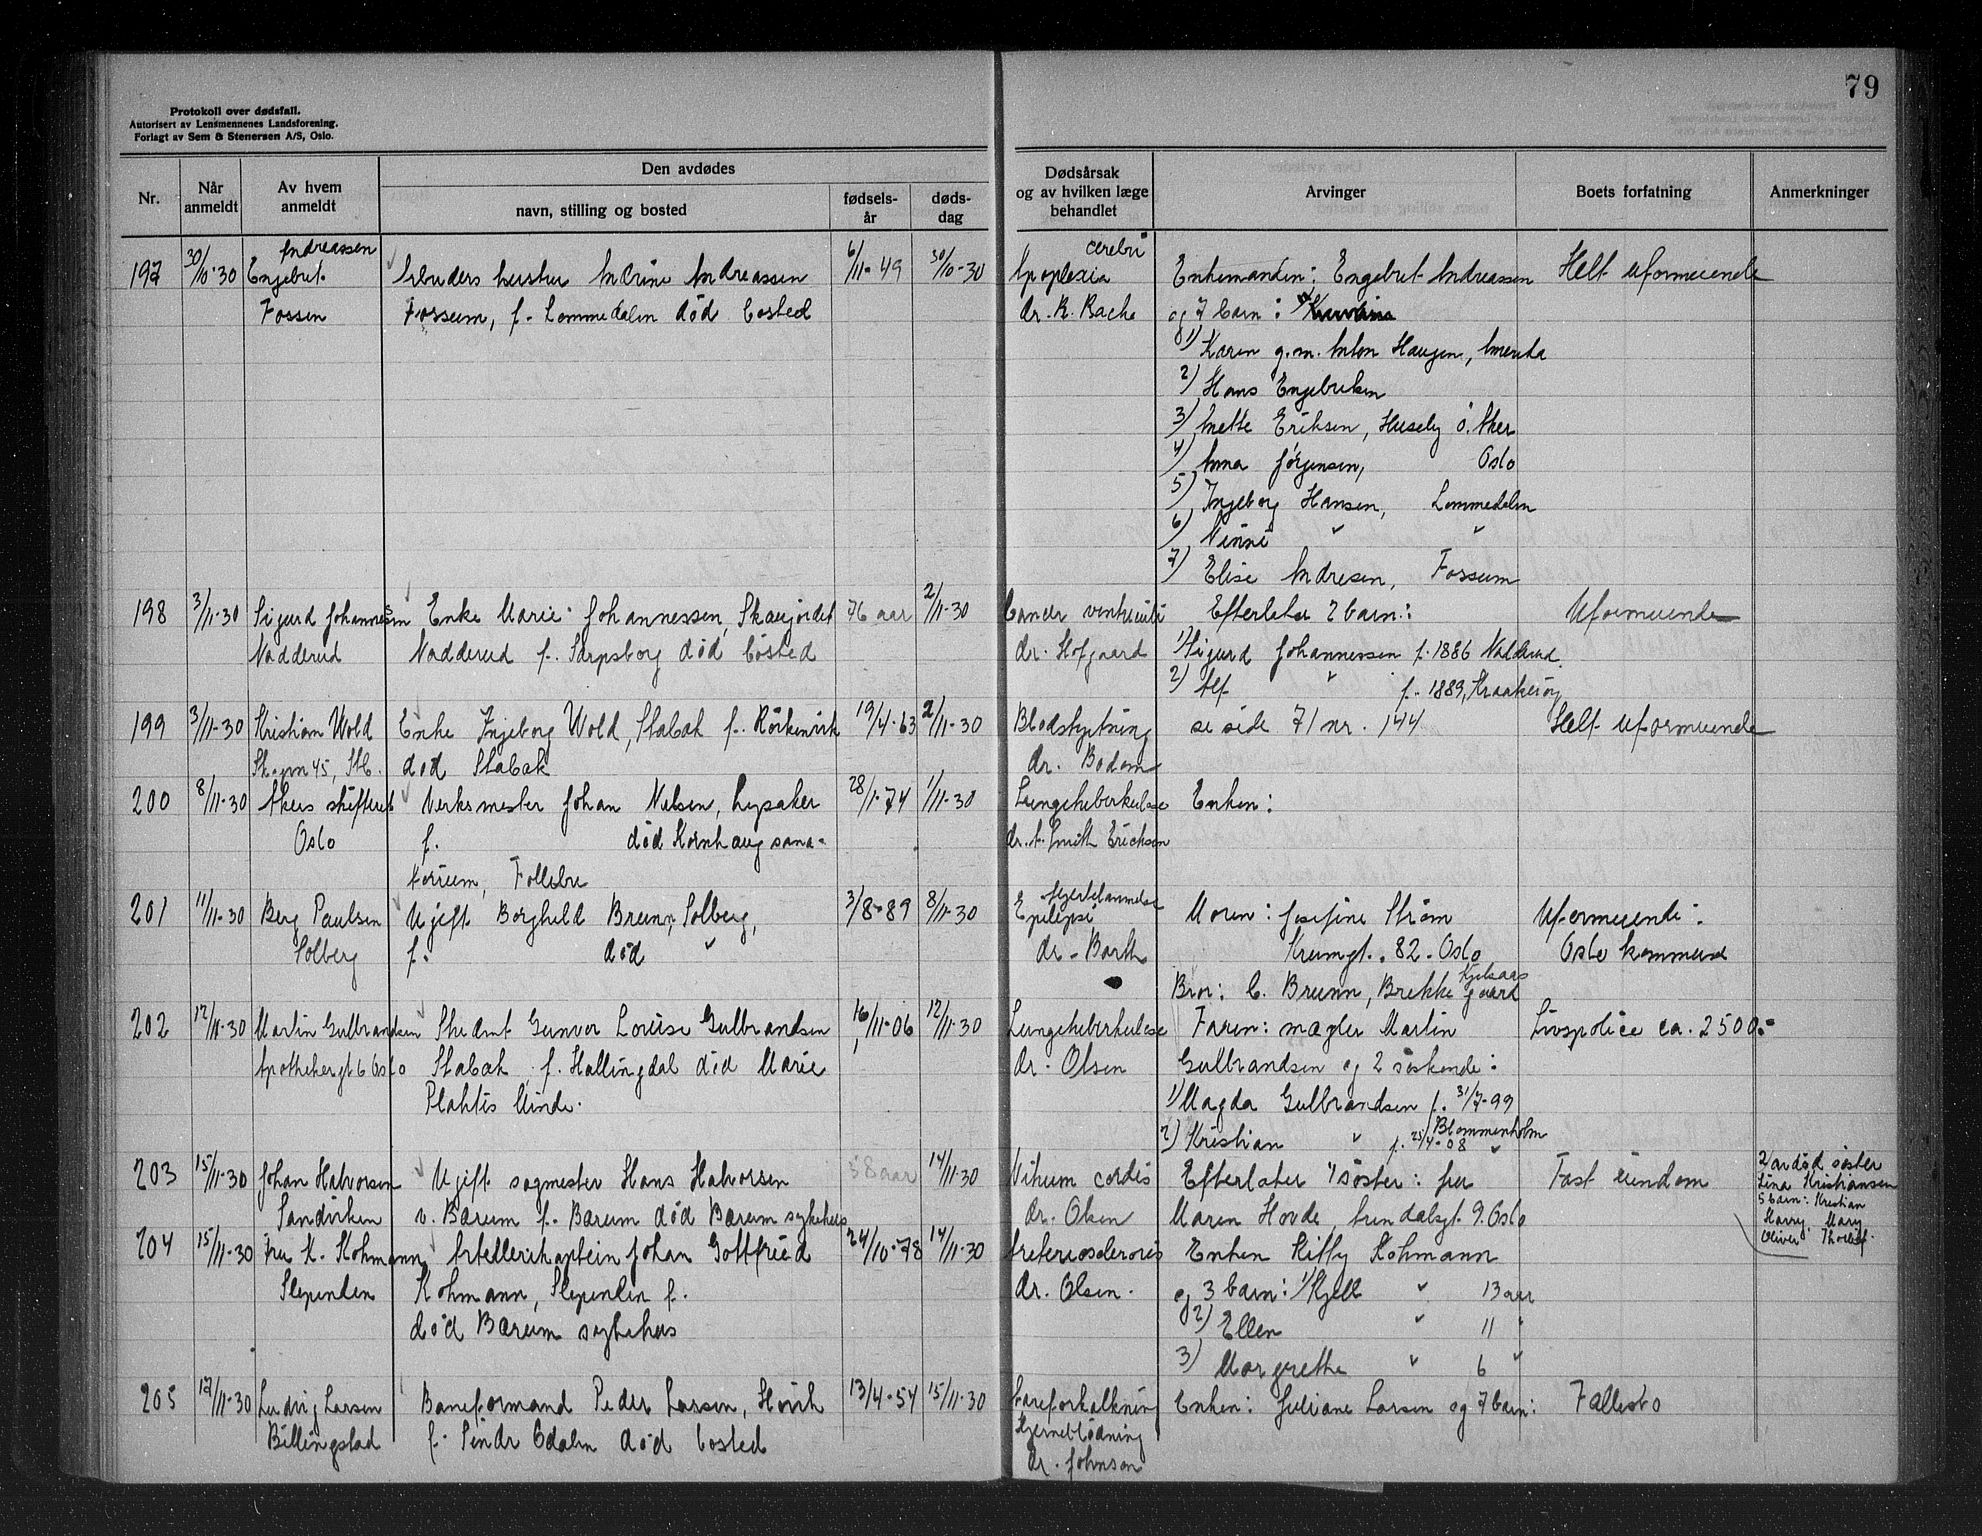 79
Protokoll over dødsfall.
Autorisert av Lensmennenes Landsforening.
Forlagt av Sem & Stenersen A/S, Oslo.
Nr.
Når anmeldt
Av hvem anmeldt
Den avdødes
navn, stilling og bosted
fødsels-år
døds-dag
Dødsårsak og av hvilken læge behandlet
Arvinger
Boets forfatning
Anmerkninger
Andreassen cerebri
197 30/10-30 Engebret Arbeiders hustru Andrine Andreassen 6/11-49 30/10-30 Apoplexia Enkemanden: Engebret Andreassen Helt uformuende
Fossen Fossum, f. Lommedalen død bosted dr. R. Bache og 7 barn:
1) Karen g.m. Anton Haugen, Amerika
2) Hans Engebretsen
3) Mette Eriksen, Huseby Ö. Aker
4) Anna Jörgensen, Oslo
5) Ingeborg Hansen, Lommedalen
6) Ninni " "
7) Elise Andresen, Fossum
198 3/11-30 Sigurd Johannessen Enke Marie Johannessen, Skaujordet 76 aar 2/11-30 Cancer ventriculi Efterlater 2 barn: Uformuende
Nadderud Nadderud f. Sarpsborg död bosted dr. Hofgaard 1) Sigurd Johannessen f. 1886 Nadderud
2) Alf " f. 1889, Kraakeröy
199 3/11-30 Kristian Wold Enke Ingeborg Wold, Stabæk f. Rörkenvik 19/4-63 2/11-30 Blodstyrtning se side 71 nr. 144 Helt uformuende
45, Stb. död Stabæk dr. Bodom
200 8/11-30 Akers skifterett Verksmester Johan Nilsen, Lysaker 28/1-74 1/11-30 Lungetuberkulose Enken:
Oslo f. död Kornhaug sana-
dr. A. Smith Erichsen
torium, Follebu
201 11/11-30 Berg Paulsen Ugift Borghild Brunn, Solberg, 3/8-89 8/11-30 Epilepsi Hjertelammelse Moren: Josefine Ström Uformuende.
Solberg f. död " dr. Barth Krumgt. 82. Oslo Oslo kommune
Bror: C. Brunn, Brekke gaard Kjelsaas
202 12/11-30 Martin Gulbrandsen Sk.dmt Gunvor Louise Gulbrandsen 16/11-06 12/11-30 Lungetuberkulose Faren: mægler Martin Livspolice ca. 2500.-
Apothekergt 6 Oslo Stabæk f. Hallingdal död Marie dr. Olsen Gulbrandsen og 2 söskende:
Plahtes Minde. 1) Magda Gulbrandsen f. 31/7-99
Blommenholm
2) Kristian " f. 25/4-08 "
203 15/11-30 Johan Halvorsen Ugift sagmester Hans Halvorsen 58 aar 14/11-30 Vitium cordis Efterlater 1 söster: fru Fast eiendom
Sandviken v. Bærum f. Bærum död Bærum sykehus dr. Olsen Maren Hovde, Arendalsgt. 9. Oslo
2) avdöd söster
Lina Kristiansen
5 barn: Kristian
Harry. Mary
Oliver Thorleif.
204 15/11-30 Fru K. Kohmann Artillerikaptein Johan Gottfried 24/10-78 14/11-30 Arteriosclerosis Enken Kitty Kohmann
Slependen Kohmann, Slependen f. dr. Olsen. og 3 barn: 1) Kjell " 13 aar
död Bærum sykehus 2) Ellen " 11 "
3) Margrethe " 6 "
205 17/11-30 Ludvig Larsen Baneformand Peder Larsen, Hövik 13/4-54 15/11-30 Aareforkalkning Enken: Juliane Larsen og 7 barn: Fallesbo
Billingstad f. Söndr Odalen död bosted Hjerneblödning
dr. Johnson